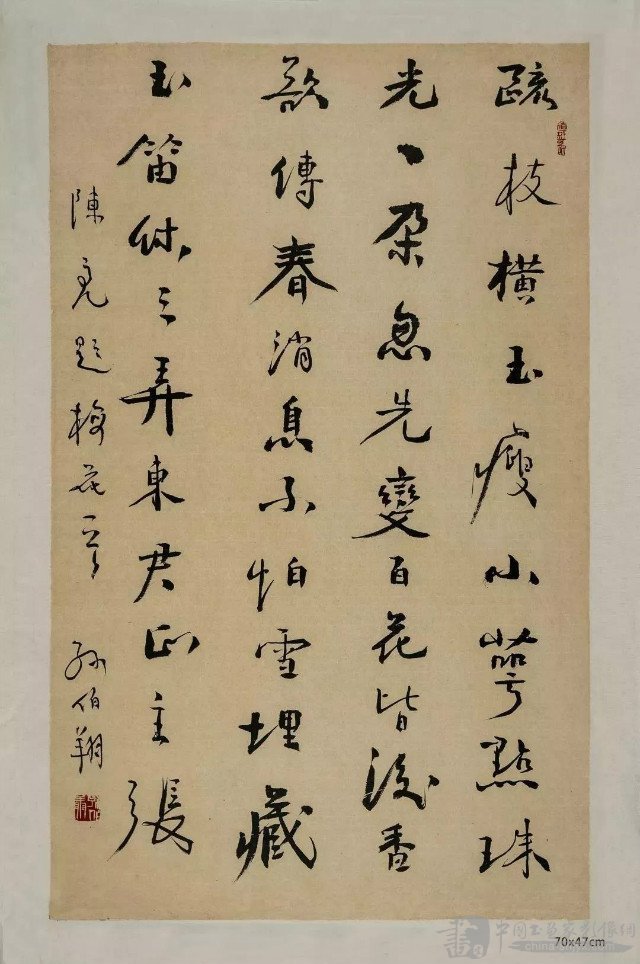 疏枝橫玉瘦小萼點珠
光一朵忽先變百花皆後香
欲傳春消息不怕雪埋藏
玉笛休三弄東君正主張
陳亮題梅花一首 孫伯翔
70x47cm